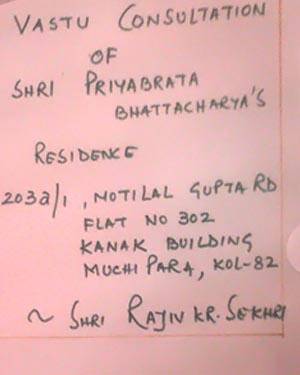 VASTU CONSULTATION
OF
SHRI PRIYABRATA
BHATTACHARYA'S
RESIDENCE
203a/1, NOTILAL GUPTA RD
FLAT NO 302
KANAK BUILDING
MUCHI PARA, KOL-82
~ SHRI RAJIV KR. SEKHRI